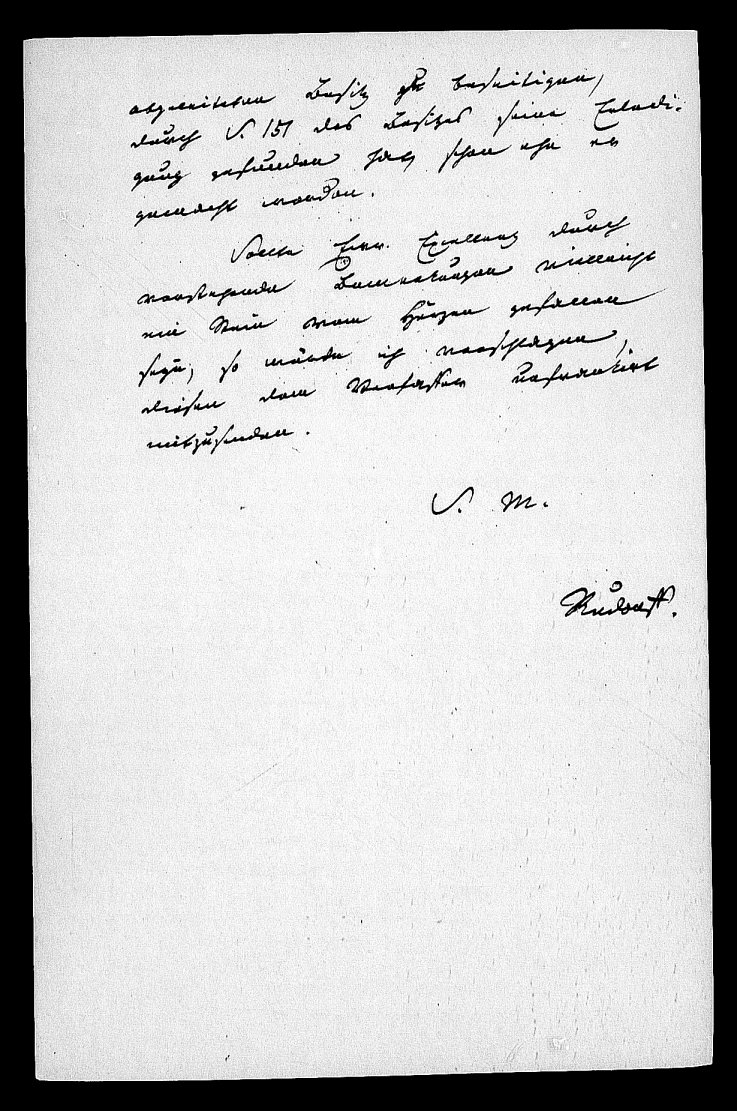 abgeleiteten Besitz zu beseitigen,
durch S. 151 des Besitzes seine Erledi-
gung gefunden hat, schon ehe er
gemacht worden.
Sollte Ew. Excellenz durch
vorstehende Bemerkungen vielleicht
ein Stein vom Herzen gefallen
seyn, so würde ich vorschlagen,
diesen dem Verfasser unfrankirt
mitzusenden.
S. M.
Rudorff.